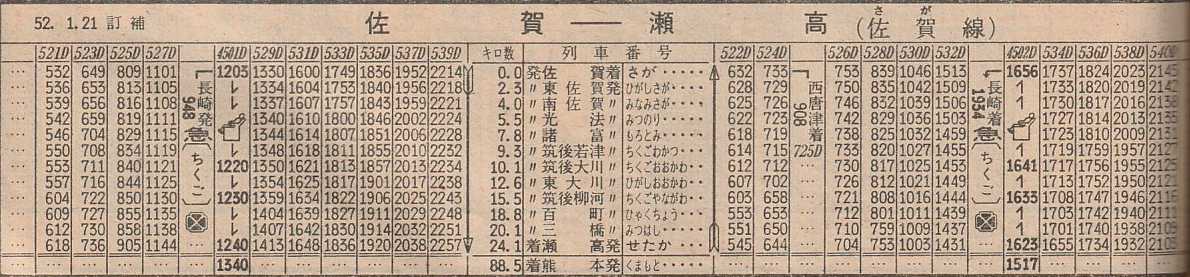 52. 1.21 訂補 佐賀―瀬高 (佐賀線) さが
521D 523D 525D 527D 4501D 529D 531D 533D 535D 537D 539D キロ数 列車番号 522D 524D 526D 528D 530D 532D 4502D 534D 536D 538D 540D
… 532 649 809 1101 1203 1330 1600 1749 1836 1952 2214 0.0 発佐賀着 さが…… 632 733 753 839 1046 1513 1656 1737 1824 2023 2145
… 536 653 813 1105 ↓ 1334 1604 1753 1840 1956 2218 2.3 〃東佐賀発 ひがしさが… 628 729 750 835 1042 1509 ↿ 1733 1820 2019 2142
… 539 656 816 1108 ↓ 1337 1607 1757 1843 1959 2221 4.0 〃南佐賀〃 みなみさが… 625 726 746 832 1039 1506 ↿ 1730 1817 2016 2138
… 542 659 819 1111 1340 1610 1800 1846 2002 2224 5.5 〃光法〃 みつのり…… 622 723 742 829 1036 1503 1727 1814 2013 2135
… 546 704 829 1115 1344 1614 1807 1851 2006 2228 7.8 〃諸富〃 もろとみ…… 618 719 738 825 1032 1459 1723 1810 2009 2131
… 550 708 834 1119 ↓ 1348 1618 1811 1855 2010 2232 9.3 〃筑後若津〃 ちくごわかつ… 614 715 725D 733 820 1027 1455 ↿ 1719 1759 1957 2127
… 553 711 840 1121 1220 1350 1621 1813 1857 2013 2234 10.1 〃筑後大川〃 ちくごおおかわ… 612 712 … 730 817 1025 1453 1641 1717 1756 1955 2125
… 557 716 844 1125 ↓ 1354 1625 1817 1901 2017 2238 12.6 〃東大川〃 ひがしおおかわ… 607 702 … 726 812 1021 1449 ↿ 1713 1752 1950 2121
… 604 722 850 1130 1230 1359 1634 1822 1906 2025 2243 15.5 〃筑後柳河〃 ちくごやながわ… 603 658 … 721 808 1016 1444 1635 1708 1747 1946 2116
… 609 727 855 1135 ↓ 1404 1639 1827 1911 2029 2248 18.8 〃百町〃 ひゃくちょう… 553 653 … 712 801 1011 1439 ↿ 1703 1743 1941
… 612 730 858 1138 ↓ 1407 1642 1830 1914 2032 2251 20.1 〃三橋〃 みつはし…… 551 650 … 710 759 1009 1437 ↿ 1701 1740 1938
… 618 736 905 1144 … 1240 1413 1648 1836 1920 2038 2257 24.1 着瀬高発 せたか…… 545 644 … 704 753 1003 1431 … 1623 1655 1734 1932
… … … … … … 1340 … … … … … … 88.5 着熊本発 くまもと…… … … … … … … … … 1517 … … … …
長崎発 948
(ちくご)
西唐津着 906
長崎着 1934
(ちくご)